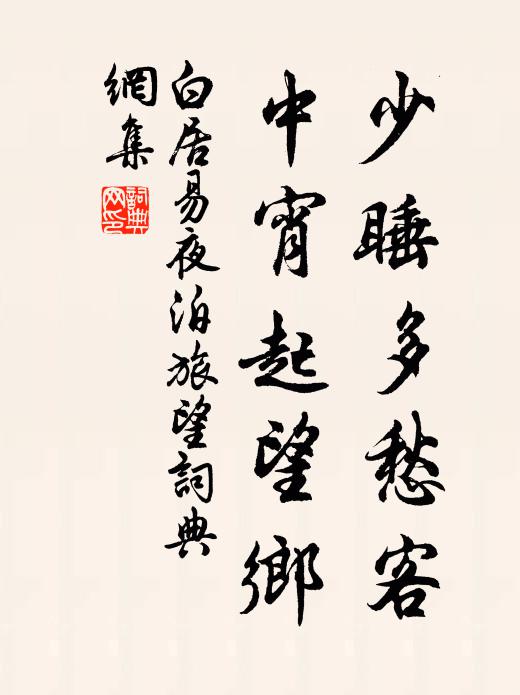 少睡多愁客
中宵起望鄉
白居易夜泊旅望詞典
網集
詞典
网印